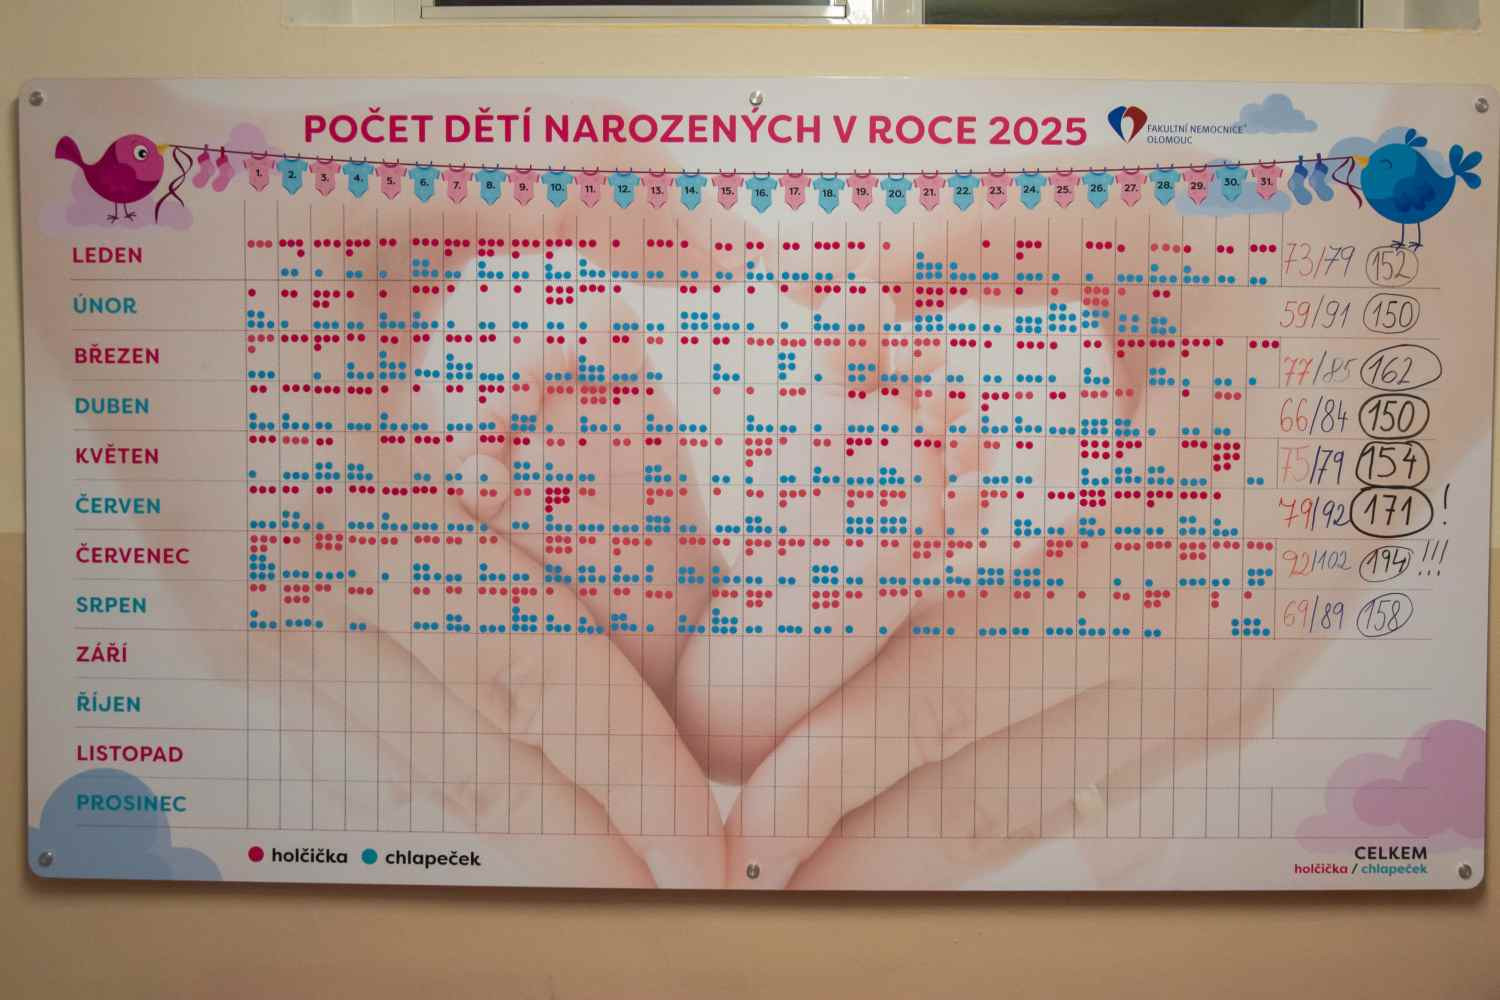 POČET DĚTÍ NAROZENÝCH V ROCE 2025
FAKULTNÍ NEMOCNICE
OLOMOUC
1. 2. 3. 4. 5. 6. 7. 8. 9. 10. 11. 12. 13. 14. 15. 16. 17. 18. 19. 20. 21. 22. 23. 24. 25. 26. 27. 28. 29. 30. 31.
LEDEN 73/79 152
ÚNOR 59/91 150
BŘEZEN 77/85 162
DUBEN 66/84 150
KVĚTEN 75/79 154
ČERVEN 79/92 171 !
ČERVENEC 92/102 194 !!!
SRPEN 69/89 158
ZÁŘÍ
ŘÍJEN
LISTOPAD
PROSINEC
holčička chlapeček
CELKEM
holčička / chlapeček